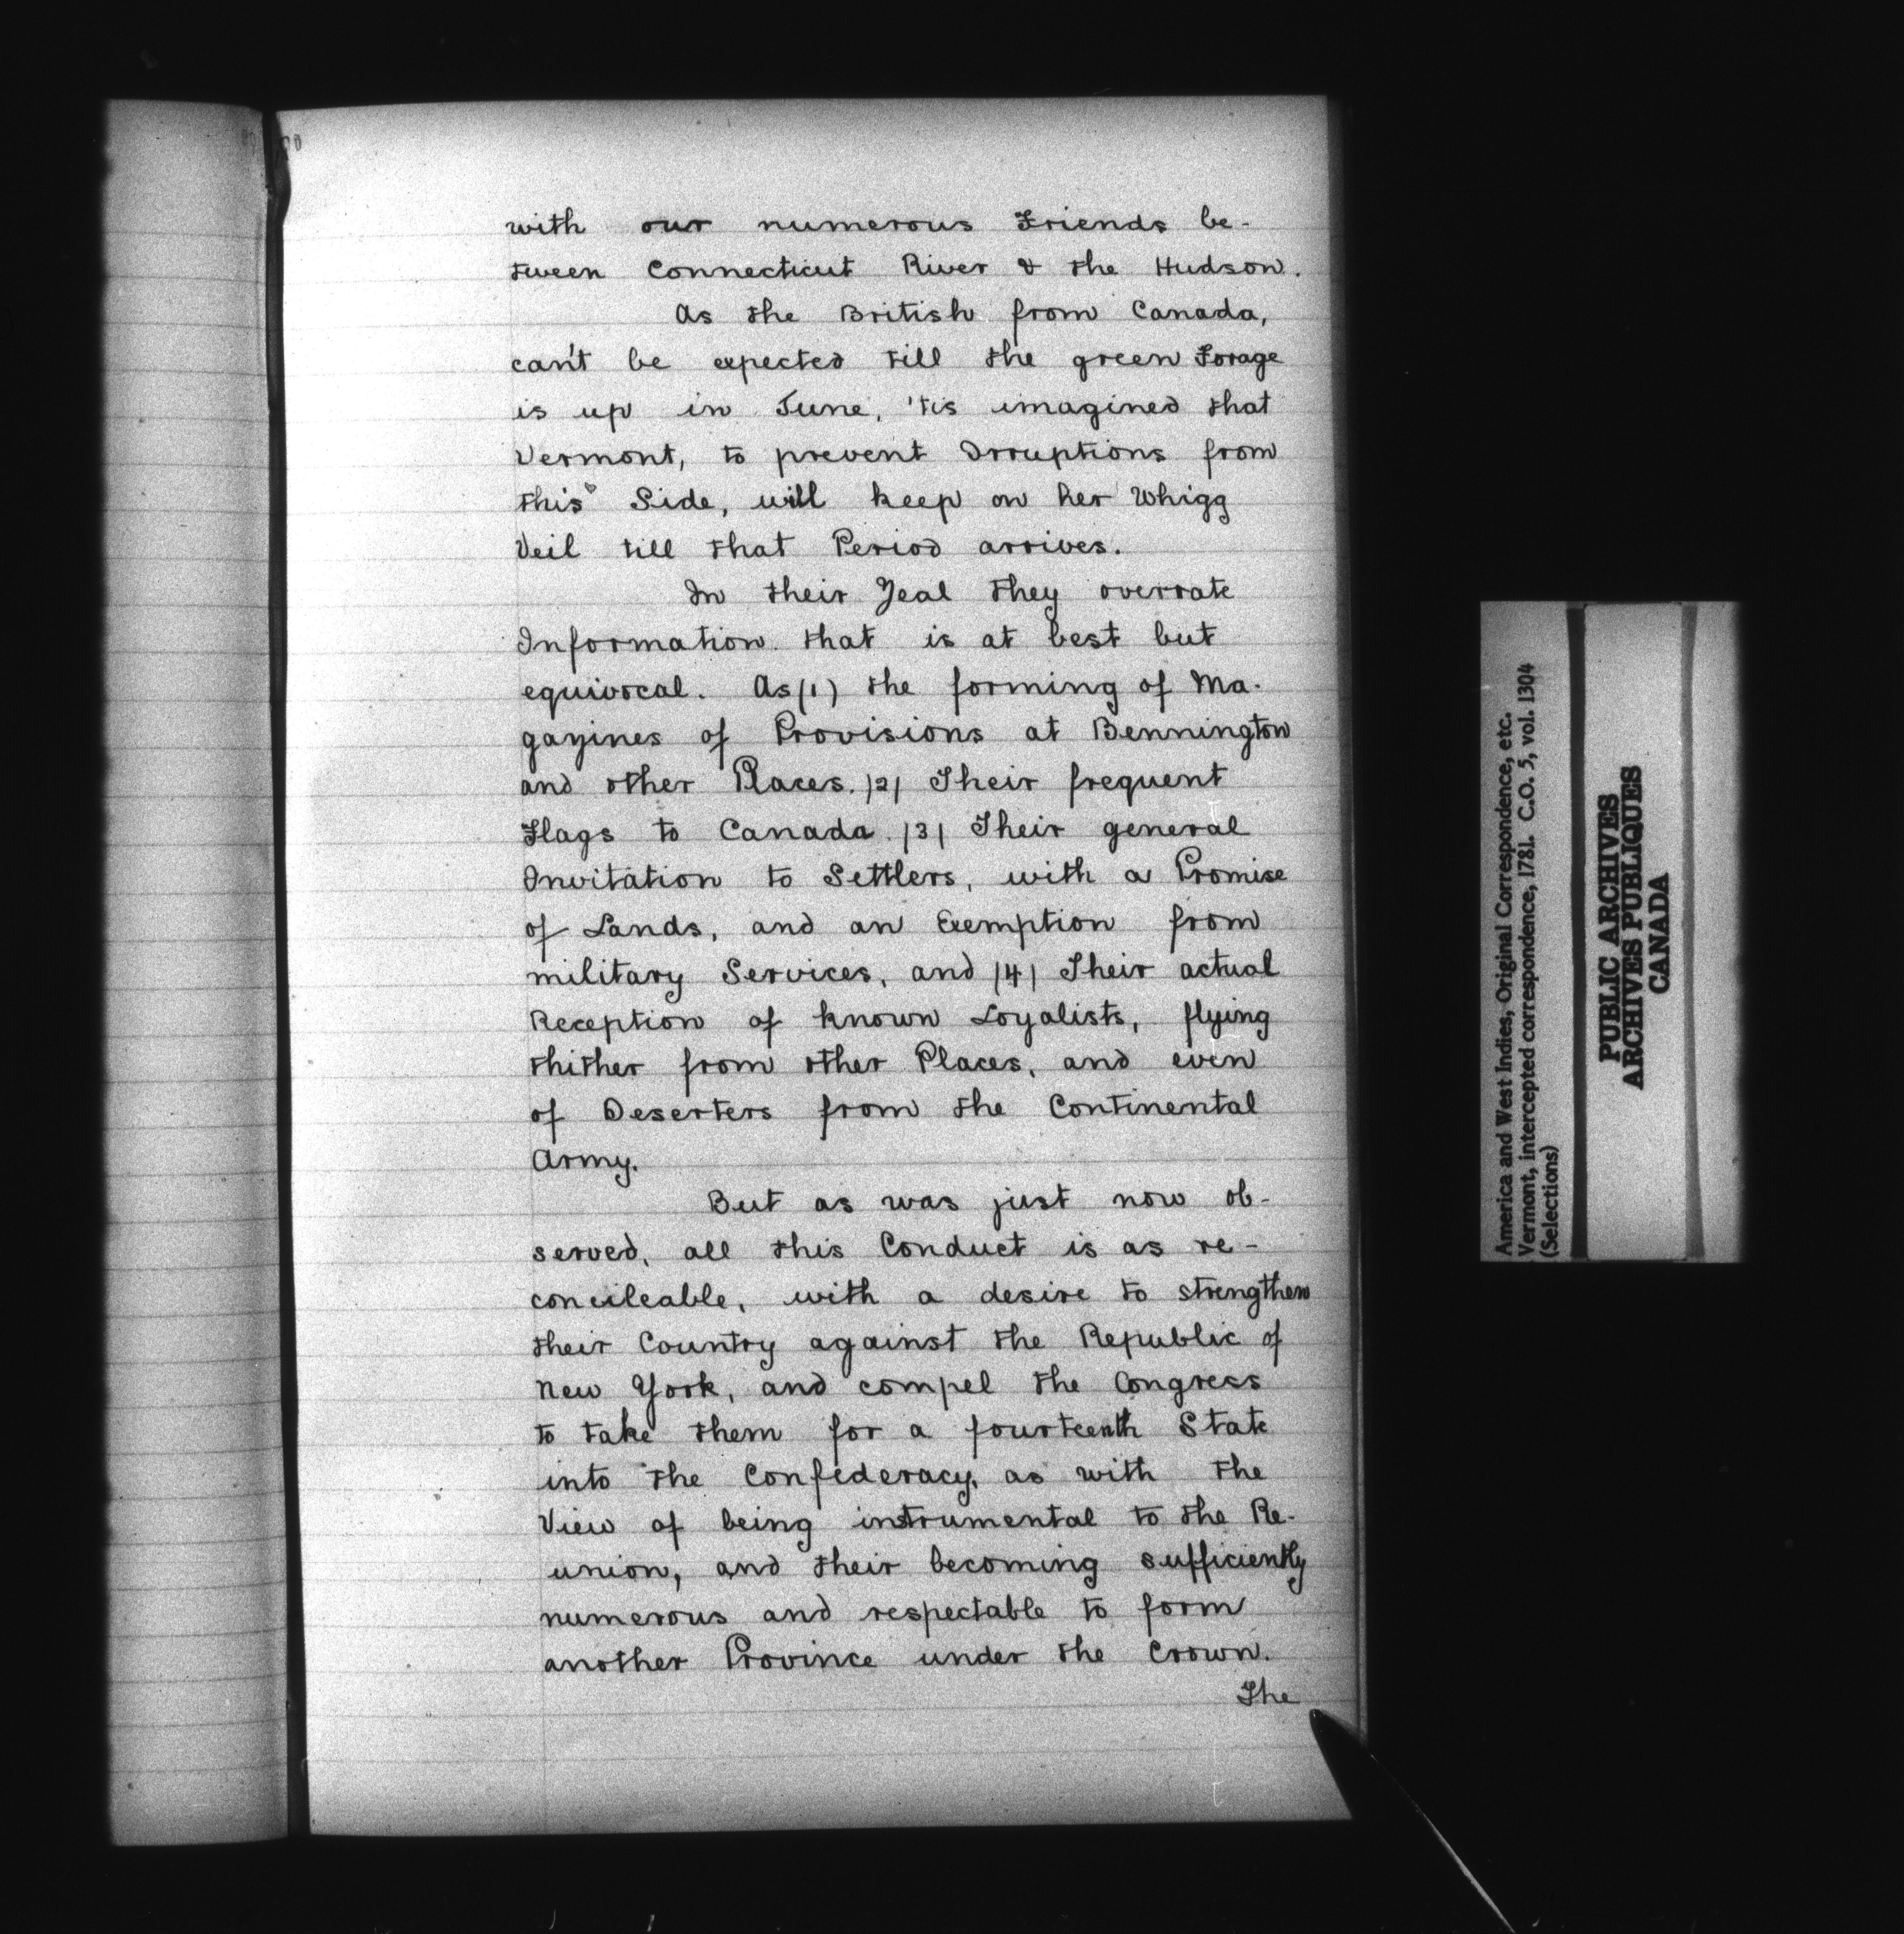 with our numerous Friends be-
tween Connecticut River & the Hudson.
As the British from Canada,
can't be expected till the green Forage
is up in June, 'tis imagined that
Vermont, to prevent Irruptions from
this Side, will keep on her Whigg
Veil till that Period arrives.
In their Zeal they overrate
Information that is at best but
equivocal. As (1) the forming of Ma-
gazines of Provisions at Bennington
and other Places. |2| Their frequent
Flags to Canada. |3| Their general
Invitation to Settlers, with a Promise
of Lands, and an Exemption from
military Services, and |4| Their actual
Reception of known Loyalists, flying
thither from other Places, and even
of Deserters from the Continental
Army.
But as was just now ob-
served, all this Conduct is as re-
concileable, with a desire to strengthen
their Country against the Republic of
New York, and compel the Congress
to take them for a fourteenth State
into the Confederacy, as with the
View of being instrumental to the Re-
union, and their becoming sufficiently
numerous and respectable to form
another Province under the Crown.
The
America and West Indies, Original Correspondence, etc.
Vermont, intercepted correspondence, 1781. C.O. 5, vol. 1304
(Selections)
PUBLIC ARCHIVES
ARCHIVES PUBLIQUES
CANADA